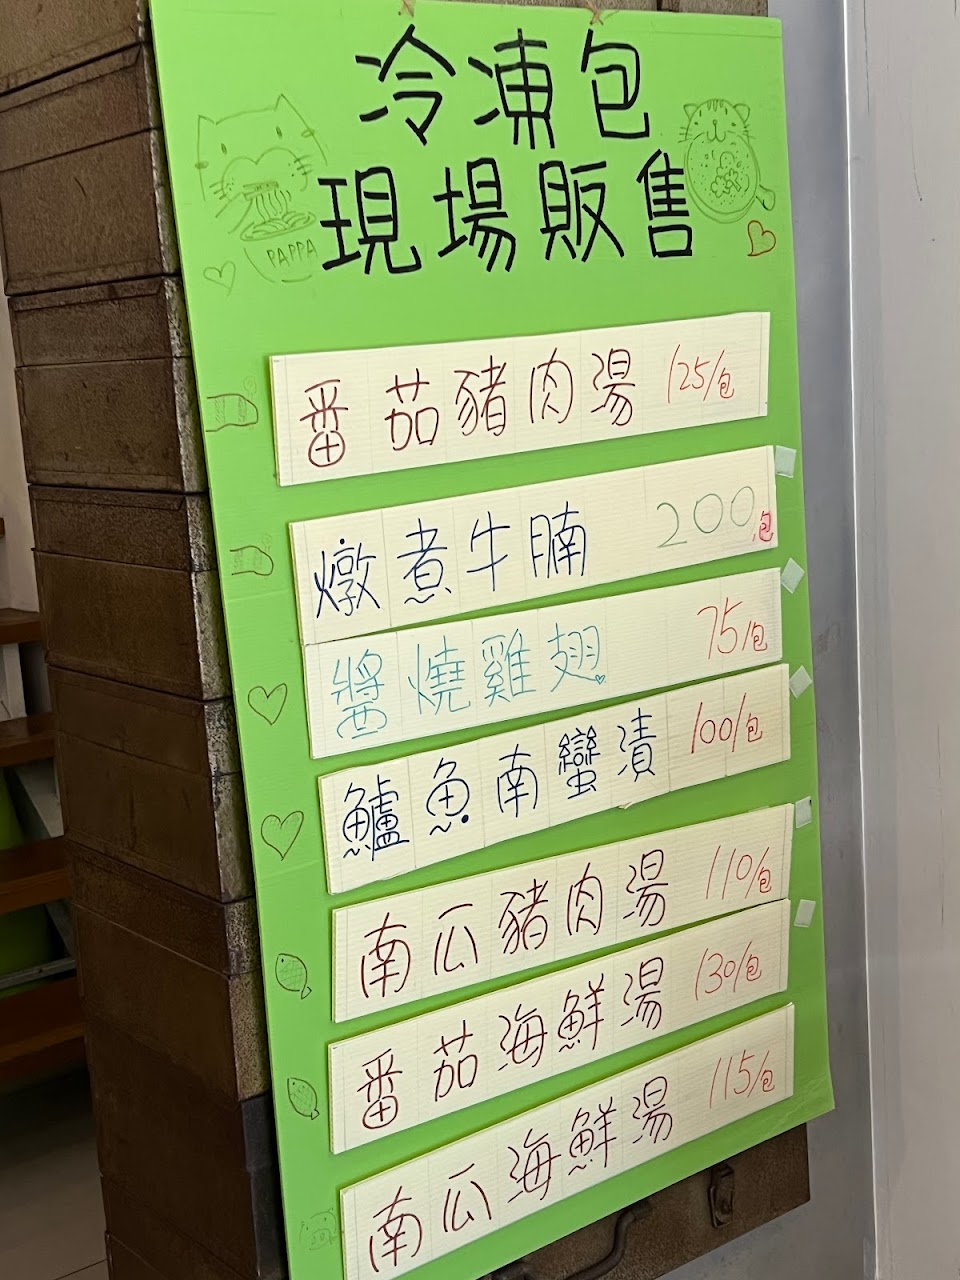 冷凍包
現場販售
PAPPA
番茄豬肉湯 125/包
燉煮牛腩 200/包
醬燒雞翅 75/包
鱸魚南蠻漬 100/包
南瓜豬肉湯 110/包
番茄海鮮湯 130/包
南瓜海鮮湯 115/包